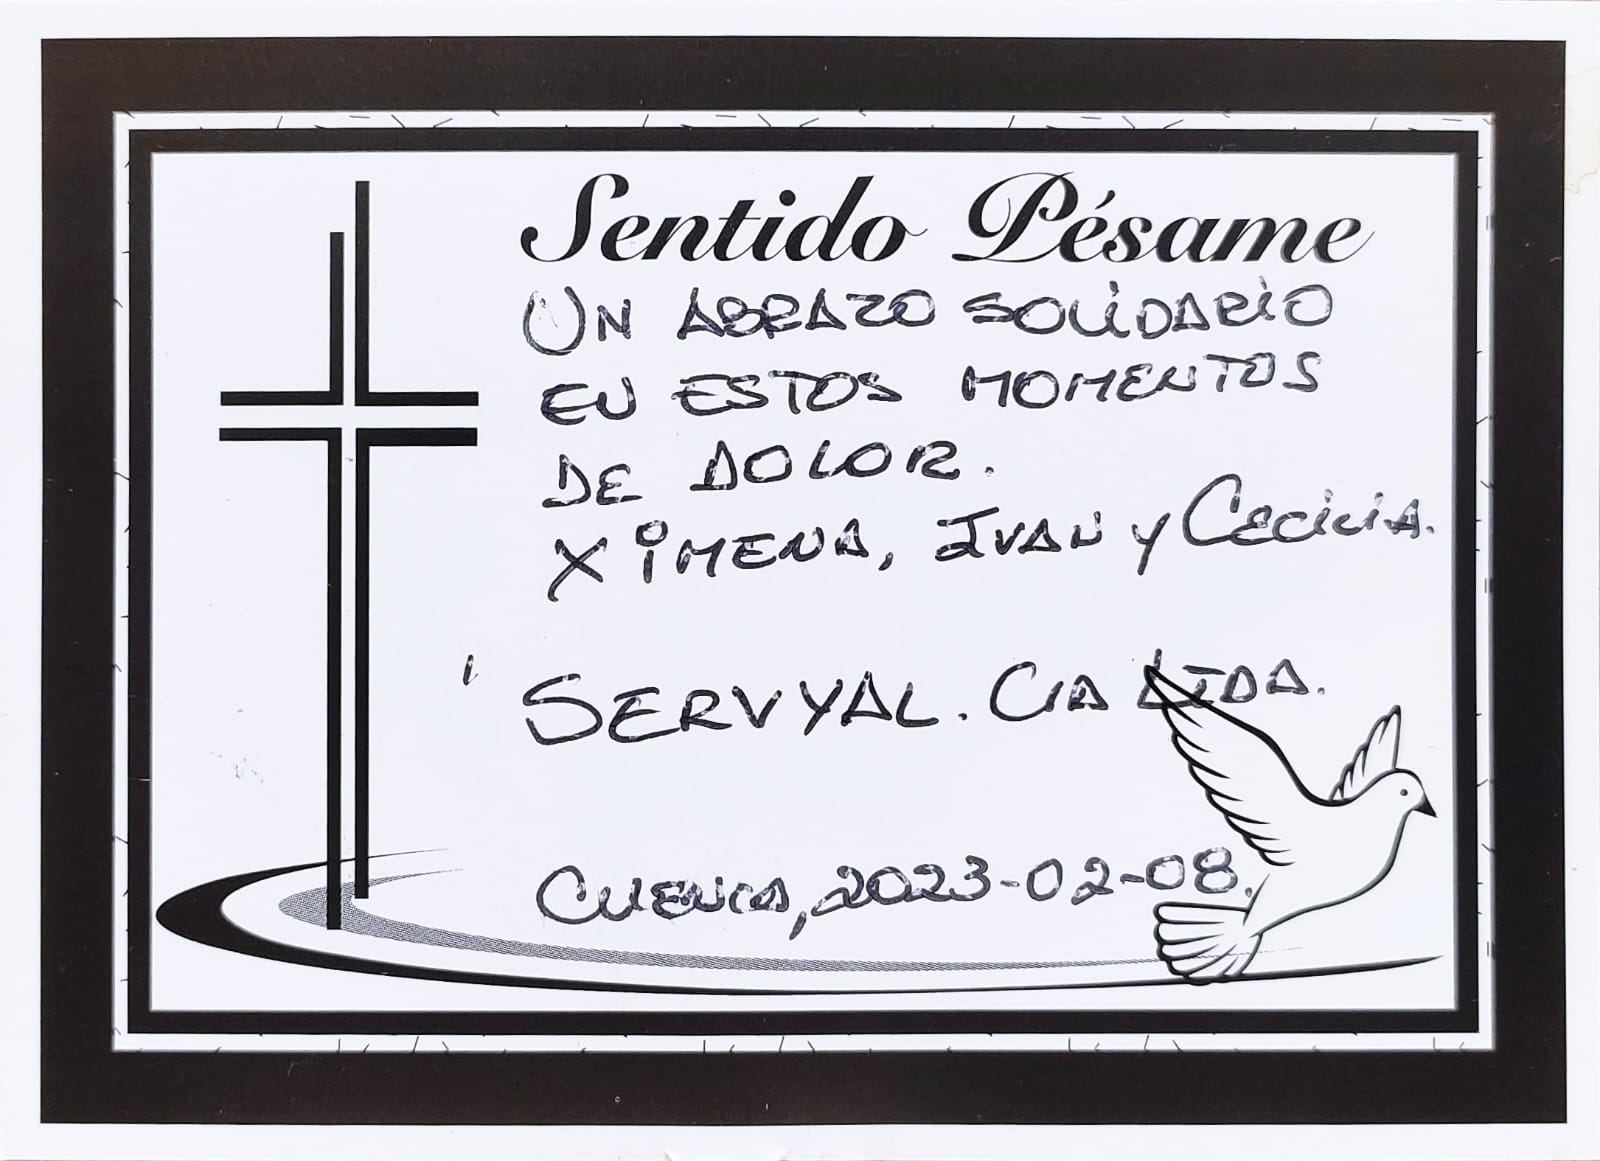 Sentido Pésame
UN ABRAZO SOLIDARIO
EN ESTOS MOMENTOS
DE DOLOR.
XIMENA, IVAN Y CECILIA.
SERVYAL. CIA LTDA.
CUENCA, 2023-02-08.